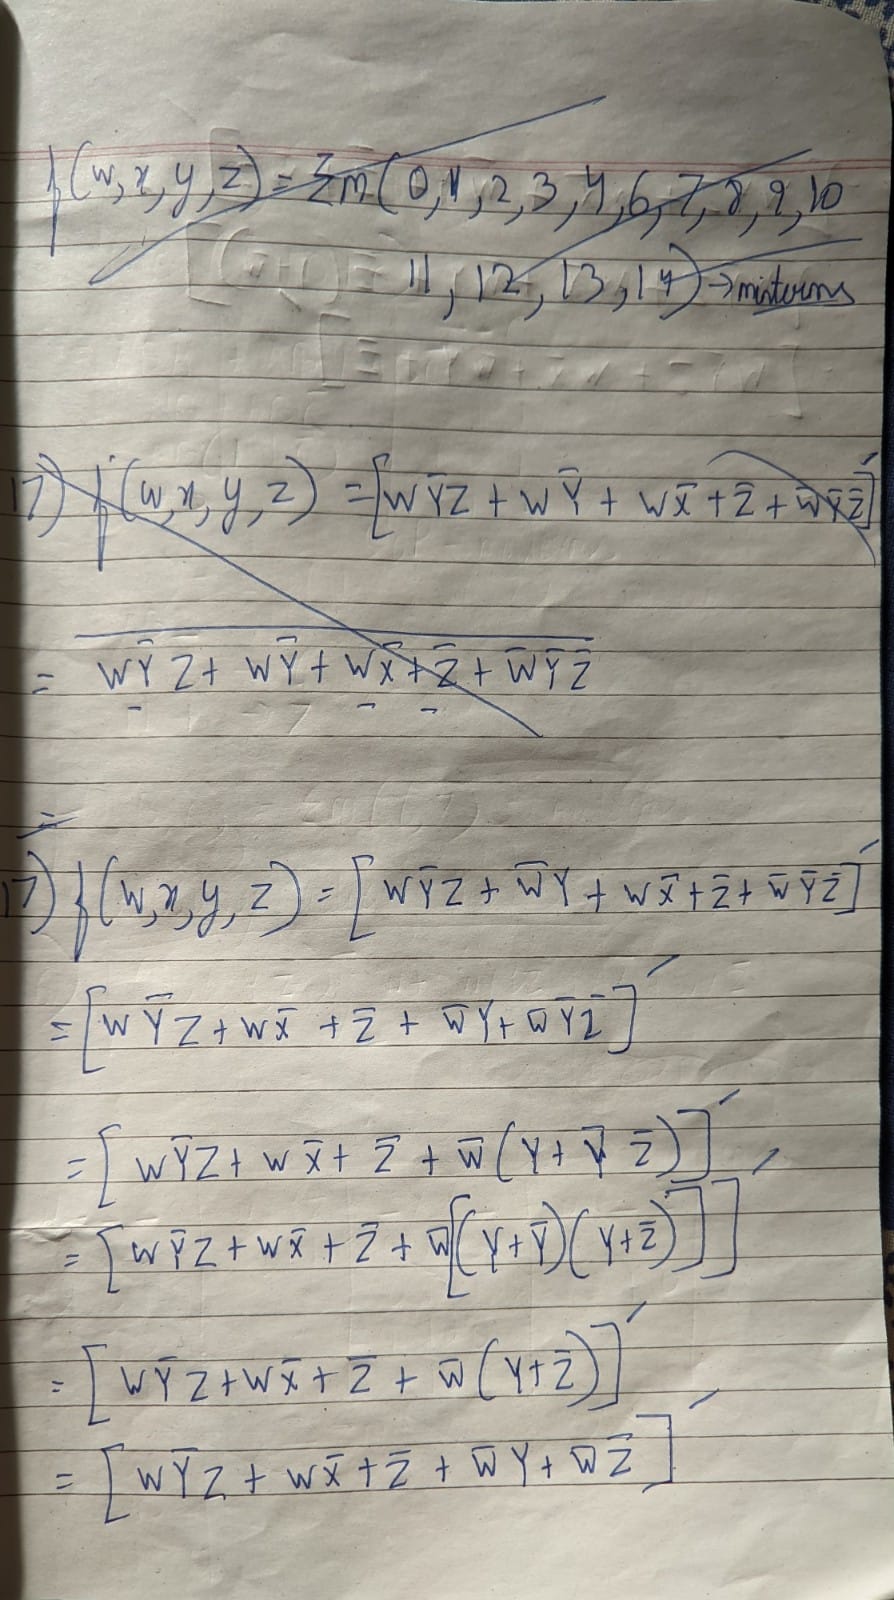 f(w,x,y,z) = Σm(0,1,2,3,4,6,7,8,9,10
11, 12, 13, 14) → minterms
17) f(w,x,y,z) = [WȲZ + WȲ + WX̄ + Z̄ + W̄ȲZ̄]′
= \overline{WȲZ + WȲ + WX̄ + Z̄ + W̄ȲZ̄}
=
17) f(w,x,y,z) = [WȲZ + W̄Y + WX̄ + Z̄ + W̄ȲZ̄]′
= [WȲZ + WX̄ + Z̄ + W̄Y + W̄ȲZ̄]′
= [WȲZ + WX̄ + Z̄ + W̄(Y + Ȳ Z̄)]′
= [WȲZ + WX̄ + Z̄ + W̄[(Y+Ȳ)(Y+Z̄)]]′
= [WȲZ + WX̄ + Z̄ + W̄(Y+Z̄)]′
= [WȲZ + WX̄ + Z̄ + W̄Y + W̄Z̄]′